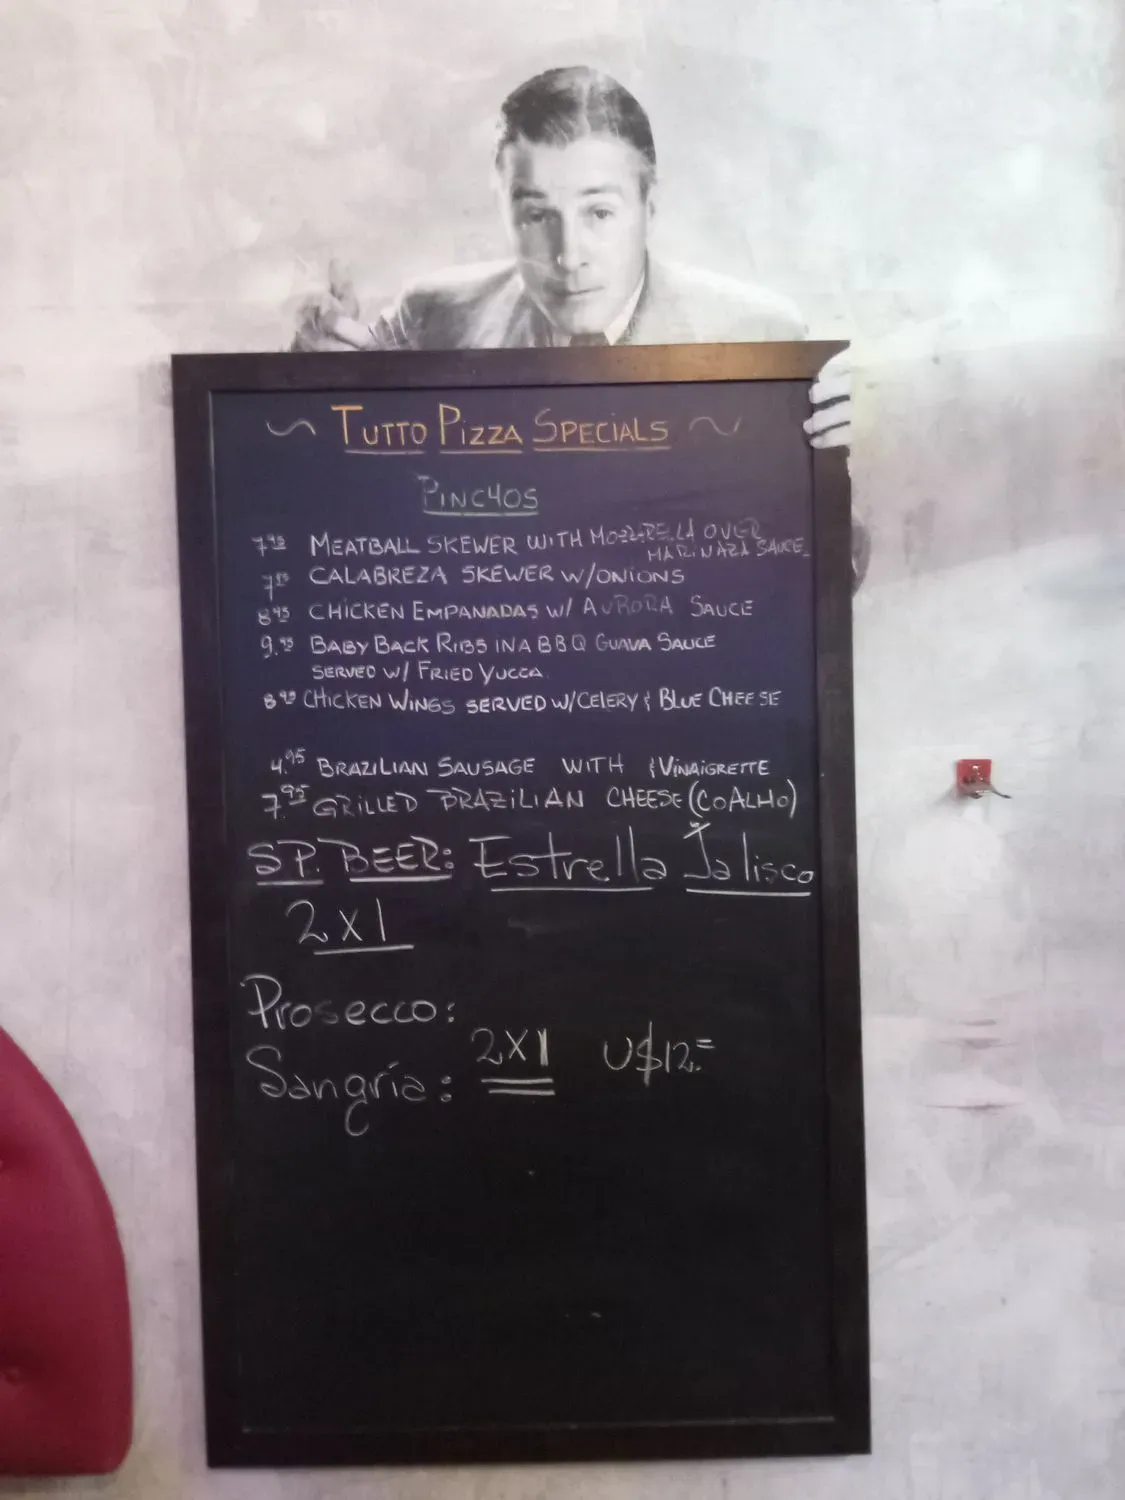 ~ TUTTO PIZZA SPECIALS ~
PINCHOS
7.95 MEATBALL SKEWER WITH MOZZARELLA OVER
MARINARA SAUCE
CALABREZA SKEWER W/ONIONS
8.95 CHICKEN EMPANADAS W/ AURORA SAUCE
9.95 BABY BACK RIBS IN A BBQ GUAVA SAUCE
SERVED W/ FRIED YUCCA
8.95 CHICKEN WINGS SERVED W/CELERY & BLUE CHEESE
4.95 BRAZILIAN SAUSAGE WITH & VINAIGRETTE
7.95 GRILLED BRAZILIAN CHEESE (COALHO)
SP. BEER: Estrella Jalisco
2x1
Prosecco:
2x1 U$12=
Sangría: